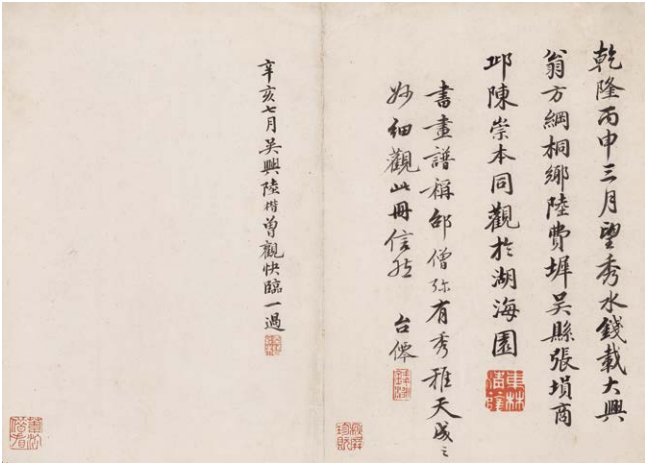 乾隆丙申三月望秀水錢載大興
翁方綱桐鄉陸費墀吳縣張塤商
邱陳崇本同觀於湖海園
書畫譜稱邵僧弥有秀雅天成之
妙細觀此冊信然
辛亥七月吳興陸楷曾觀快臨一過